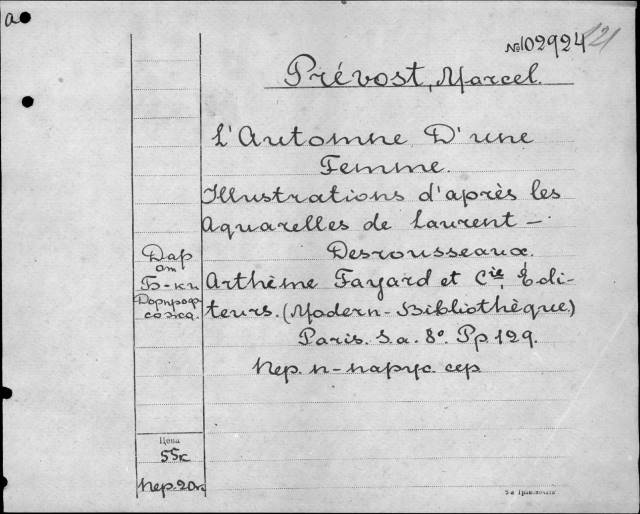 a
№102924
121
Prévost, Marcel.
L'Automne D'une
Femme.
Illustrations d'après les
Aquarelles de Laurent –
Desrousseaux.
Arthème Fayard et Cie, Edi-
teurs. (Modern-Bibliothèque)
Paris. S.a. 8º. Pp 129.
пер. п-парус. сер
Дар
от
Б-ки
Дорпроф-
сожа.
Цена
55к
пер. 20к